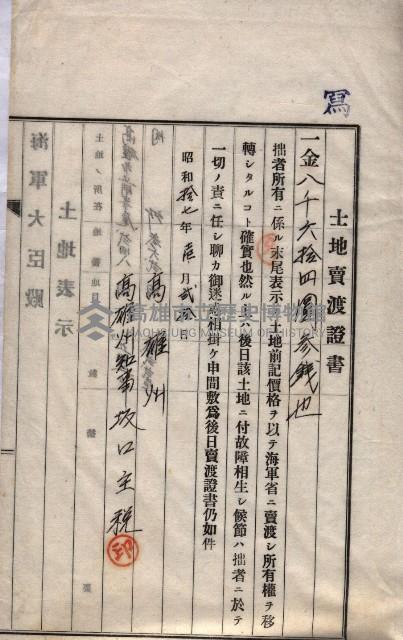 寫
土地賣渡證書
一金八千六拾四圓参錢也
拙者所有ニ係ル末尾表示ノ土地前記價格ヲ以テ海軍省ニ賣渡シ所有權ヲ移
轉シタルコト確實也然ル上ハ後日該土地ニ付故障相生シ候節ハ拙者ニ於テ
一切ノ責ニ任シ聊カ御迷惑相掛ケ申間敷爲後日賣渡證書仍如件
昭和拾七年 月貳 日
高雄州
高雄州知事坂口主税
印
土地ノ所在 地番 地目
土地表示
海軍大臣殿
高雄市立歷史博物館
KAOHSIUNG MUSEUM OF HISTORY